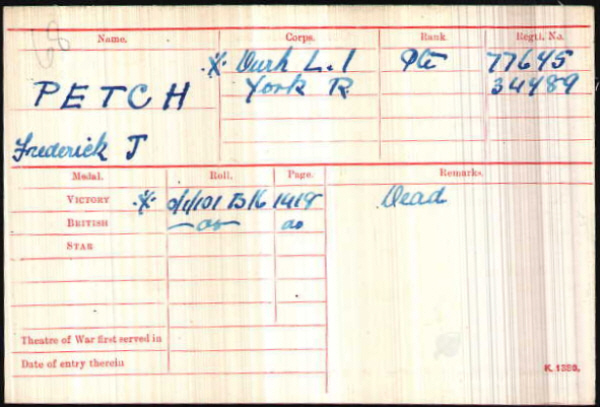 68
Name. Corps. Rank. Regtl. No.
·X· Durh L.I Pte 77645
PETCH York R 34489
Frederick J
Medal. Roll. Page. Remarks.
VICTORY ·X· 0/1/101 B16 1419 Dead
BRITISH —do— do
STAR
Theatre of War first served in
Date of entry therein
K. 1380.